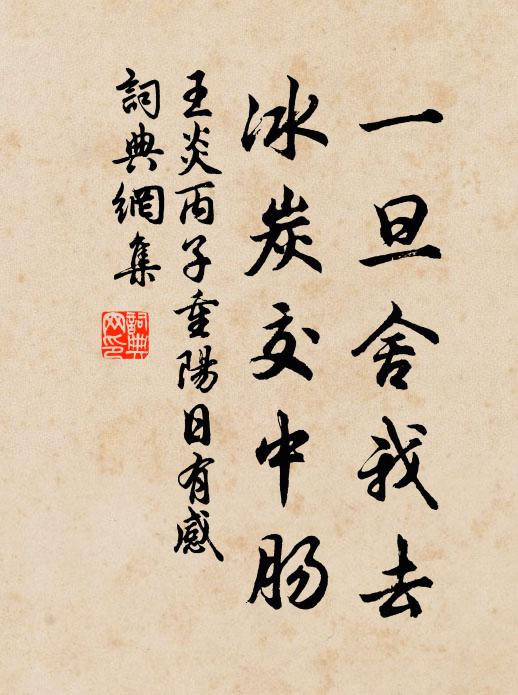 一旦舍我去
冰炭交中肠
王炎丙子重陽日有感
詞典網集
詞典網印